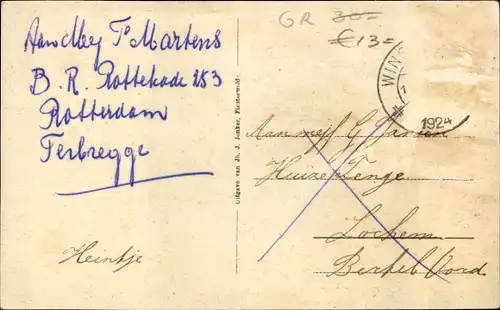 Aan Mej T. Martens
B. R. Rottekade 253
Rotterdam
Terbregge
Heintje
Uitgave van Jb. J. Jonker, Finsterwolde
GR 30=
€13=
WINS
1924
Aan mej G. Jansen
Huize Enge
Lochem
Berkel Oord